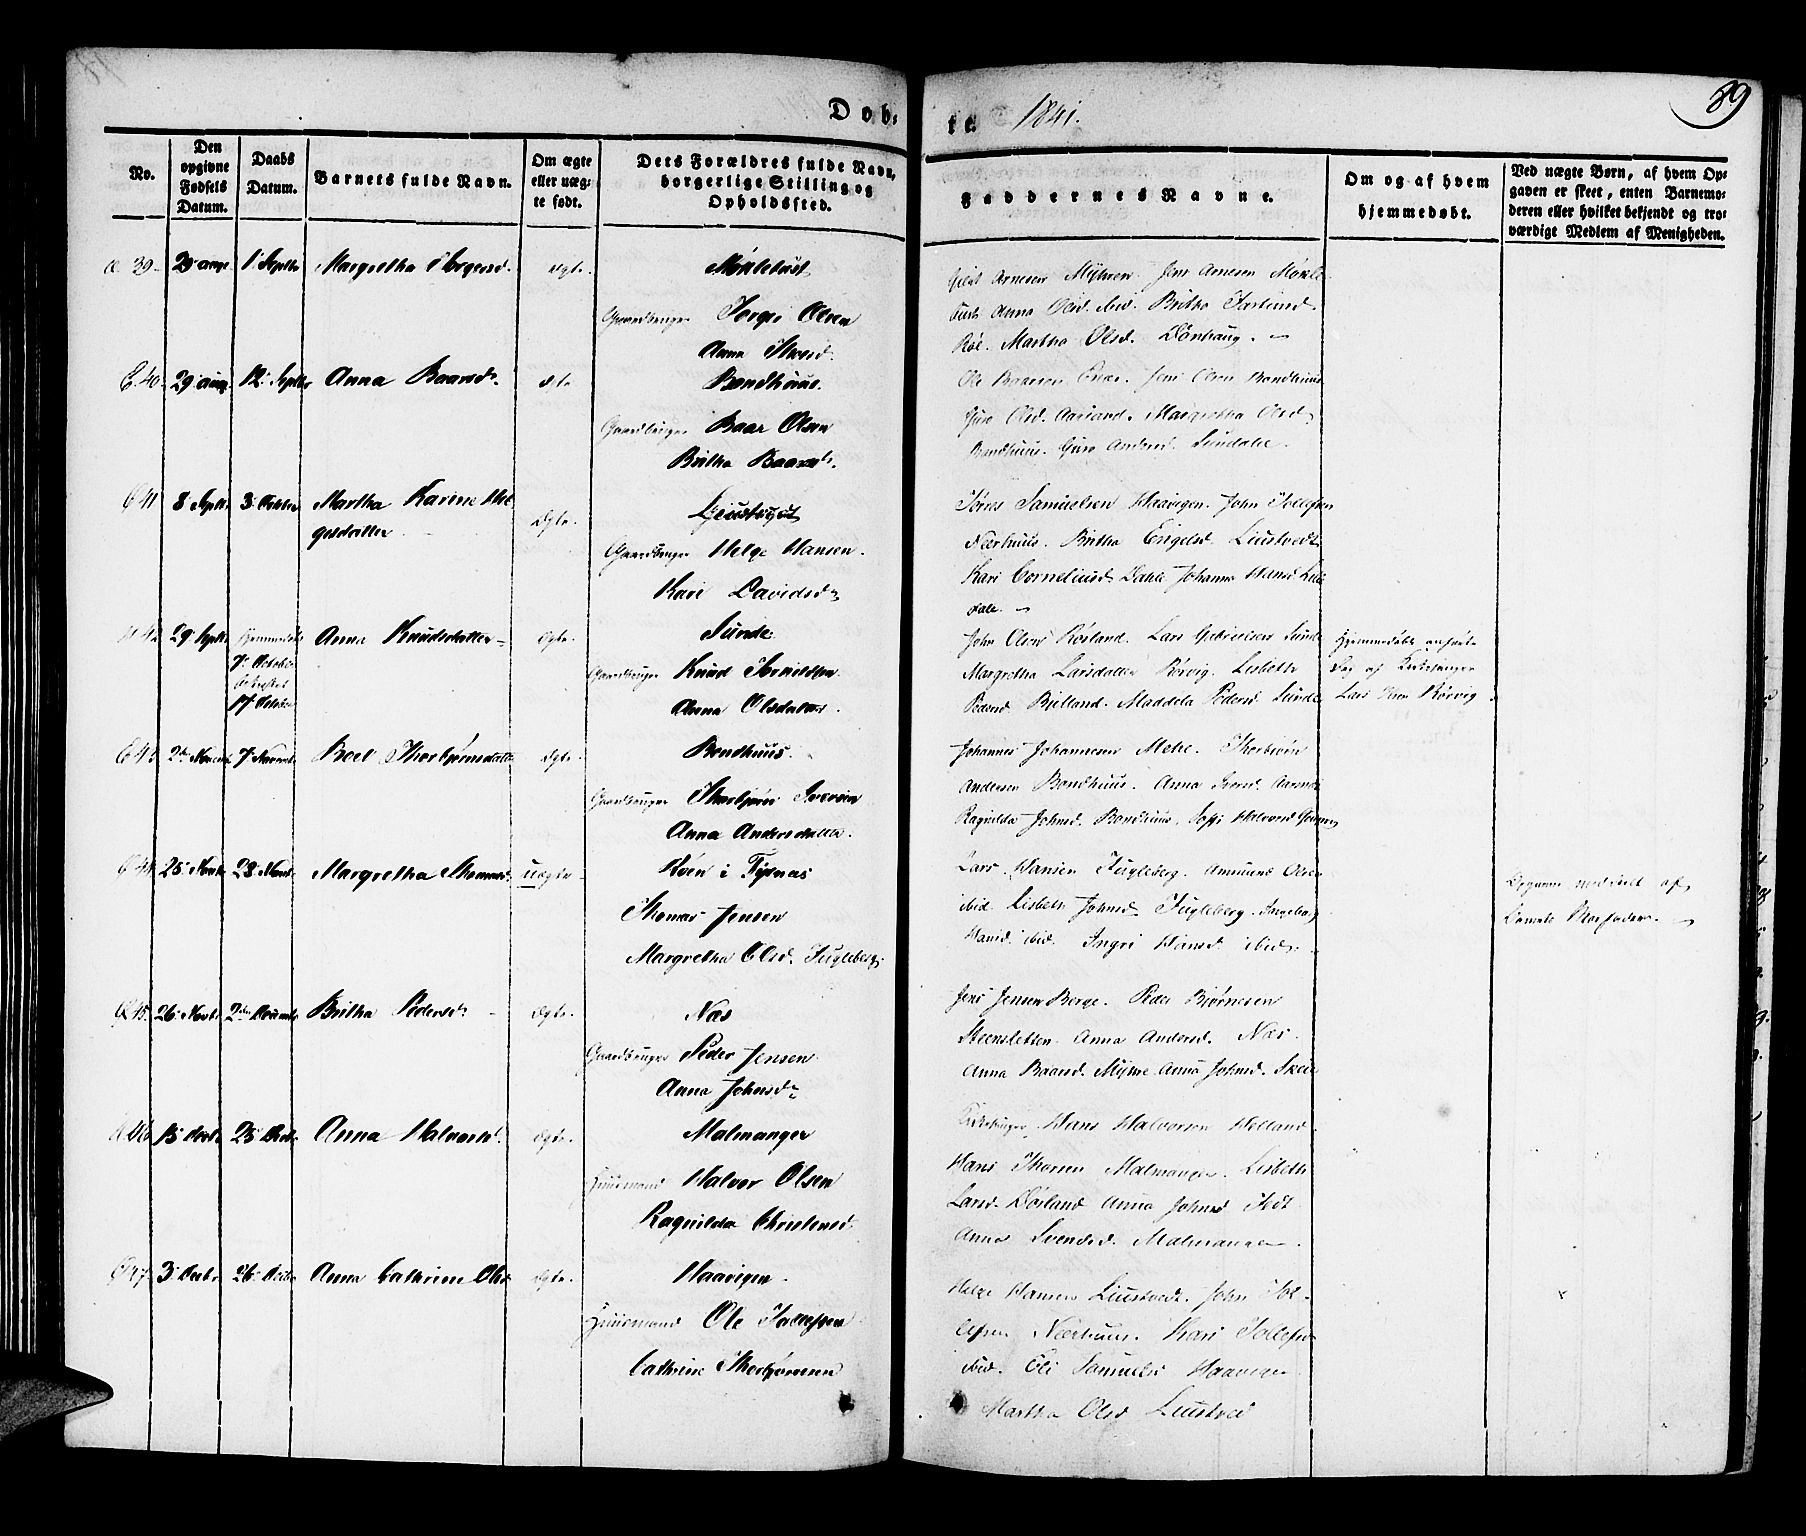 Døb-
te. 1841.
89
No.
Den opgivne Fødsels Datum.
Daabs Datum.
Barnets fulde Navn.
Om ægte eller uæg-te født.
Dets Forældres fulde Navn, borgerlige Stilling og Opholdssted.
Faddernes Navne.
Om og af hvem hjemmedøbt.
Ved uægte Børn, af hvem Op-gaven er skeet, enten Barnemo-deren eller hvilket bekjendt og tro-værdigt Medlem af Menigheden.
39. 29 aug. 1 Septbr Margretha Torgersd. ægte. Møklebust
Gaardbruger Torger Olsen
Anna Iversd.
Arnesen Myhren. Jens Arnesen Møkle-
bust Anna Olsd. ibid. Britha
Røe. Martha Olsd. Dønhaug.
40. 29 aug. 12 Septbr Anna Baarsd. Bondhuus.
Gaardbruger Baar Olsen
Britha Baarsd.
Ole Baarsen Jens Olsen Bondhuus
Guro Olsd. Margretha Olsd.
Bondhuus. Guro Andersd. Sundal
41 8 Septbr 3 October Martha Karine Hel-
gesdatter ægte. Liustvedt
Gaardbruger Helge Hansen.
Kari Davidsd.
Tørres Samuelsen Haavigen. John Tollefsen
Neerhuus. Britha Engelsd. Liustvedt
Kari Corneliusd. Dahle Johanna Hansd. Lille-
dale.
42 29 Septbr Hjemmedøbt
7 October
17 October
Anna Knudsdatter ægte. Sunde
Gaardbruger Knud
Anna Olsdatter.
John Olsen Røsland. Lars Gabrielsen Sunde
Margretha Larsdatter Rørvig. Lisbeth
Pedersd. Bielland. Maddela Pedersd. Sunde
Hjemmedøbt anførte
Dag af Kirkesanger
Lars Rørvig
43 7 Novbr Boel Thorbjørnsdatter ægte. Bondhuus.
Gaardbruger Thorbjørn Iversen
Anna Andersdatter.
Johannes Johannesen Mehl. Thorbiørn
Andersen Bondhuus. Anna Iversd.
Ragnilda Johnsd. Bondhuus.
44 25 Novbr 28 Novbr Margretha Thomasd. uægte Hven i Tysnæs
Thomas Jensen
Margretha Olsd. Fugleberg
Lars Hansen Fugleberg. Amund Olsen
ibid. Lisbeth Johnsd. Fugleberg. Ingeborg
Hansd. ibid. Ingri Hansd. ibid.
Opgaven meddeelt af
Barnets Morfader.
45. 26 Novbr Britha Pedersd. ægte. Næs
Gaardbruger Peder Jensen
Anna Johnsd.
Jens Jensen Berge. Peder Biørnesen
Steensletten. Anna Andersd. Næs.
Anna Baarsd. Myhre. Anna Johnsd. Skeie
46 15 Decbr 25 Decbr Anna Halvorsd. ægte. Malmanger
Huusmand Halvor Olsen
Ragnilda Christensd.
Hans Halvorsen Helland.
Hans Thorsen Malmanger. Lisbeth
Larsd. Røsland Anna Johnsd. Tvedt
Anna Svendsd. Malmanger.
47 3 Decbr 26 Decbr Anna Cathrine Olsd. ægte. Haavigen
Huusmand Ole Tollefsen
Cathrine Thorbjørnsen
Helge Hansen Liustvedt. John Tol-
lefsen Neerhuus. Kari Tollefsd.
ibid. Eli Samuelsd. Haavigen
Martha Olsd. Liustved